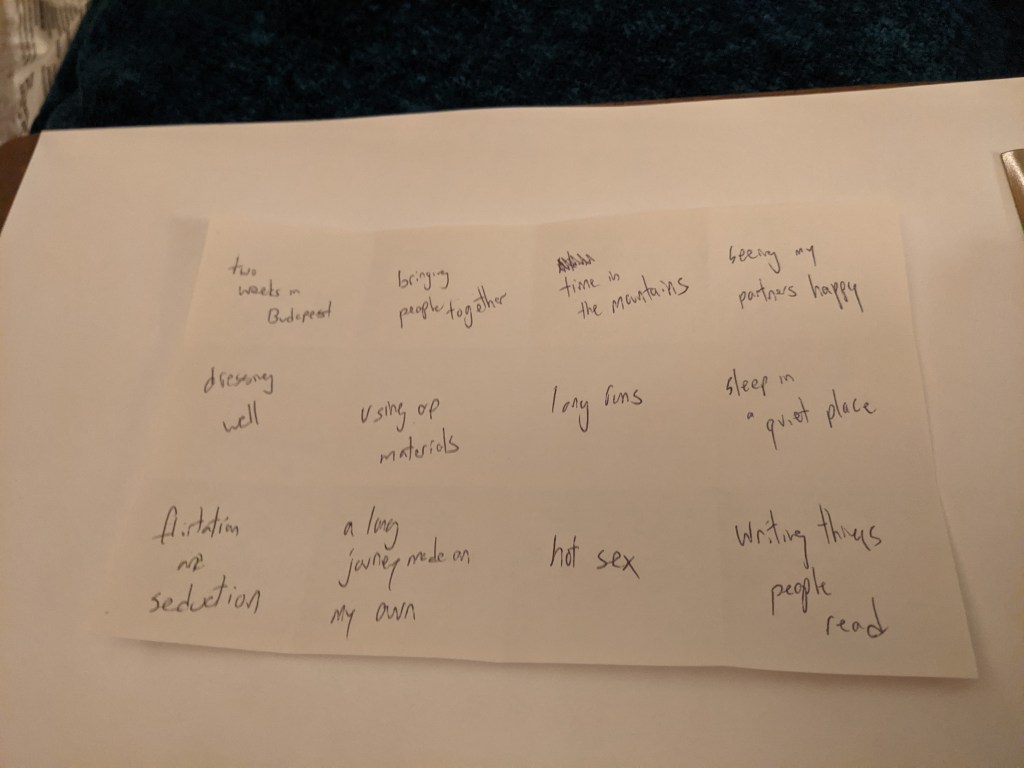 two
weeks in
Budapest
bringing
people together
time in
the mountains
seeing my
partners happy
dressing
well
using up
materials
long runs
sleep in
a quiet place
flirtation
and
seduction
a long
journey made on
my own
hot sex
writing things
people
read